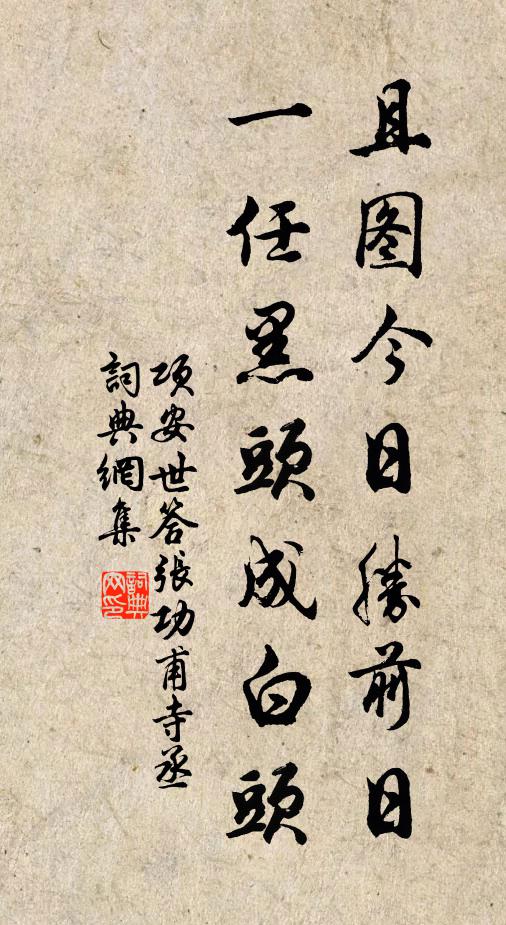 且图今日勝前日
一任黑頭成白頭
項安世答張功甫寺丞
詞典網集
詞典
网印